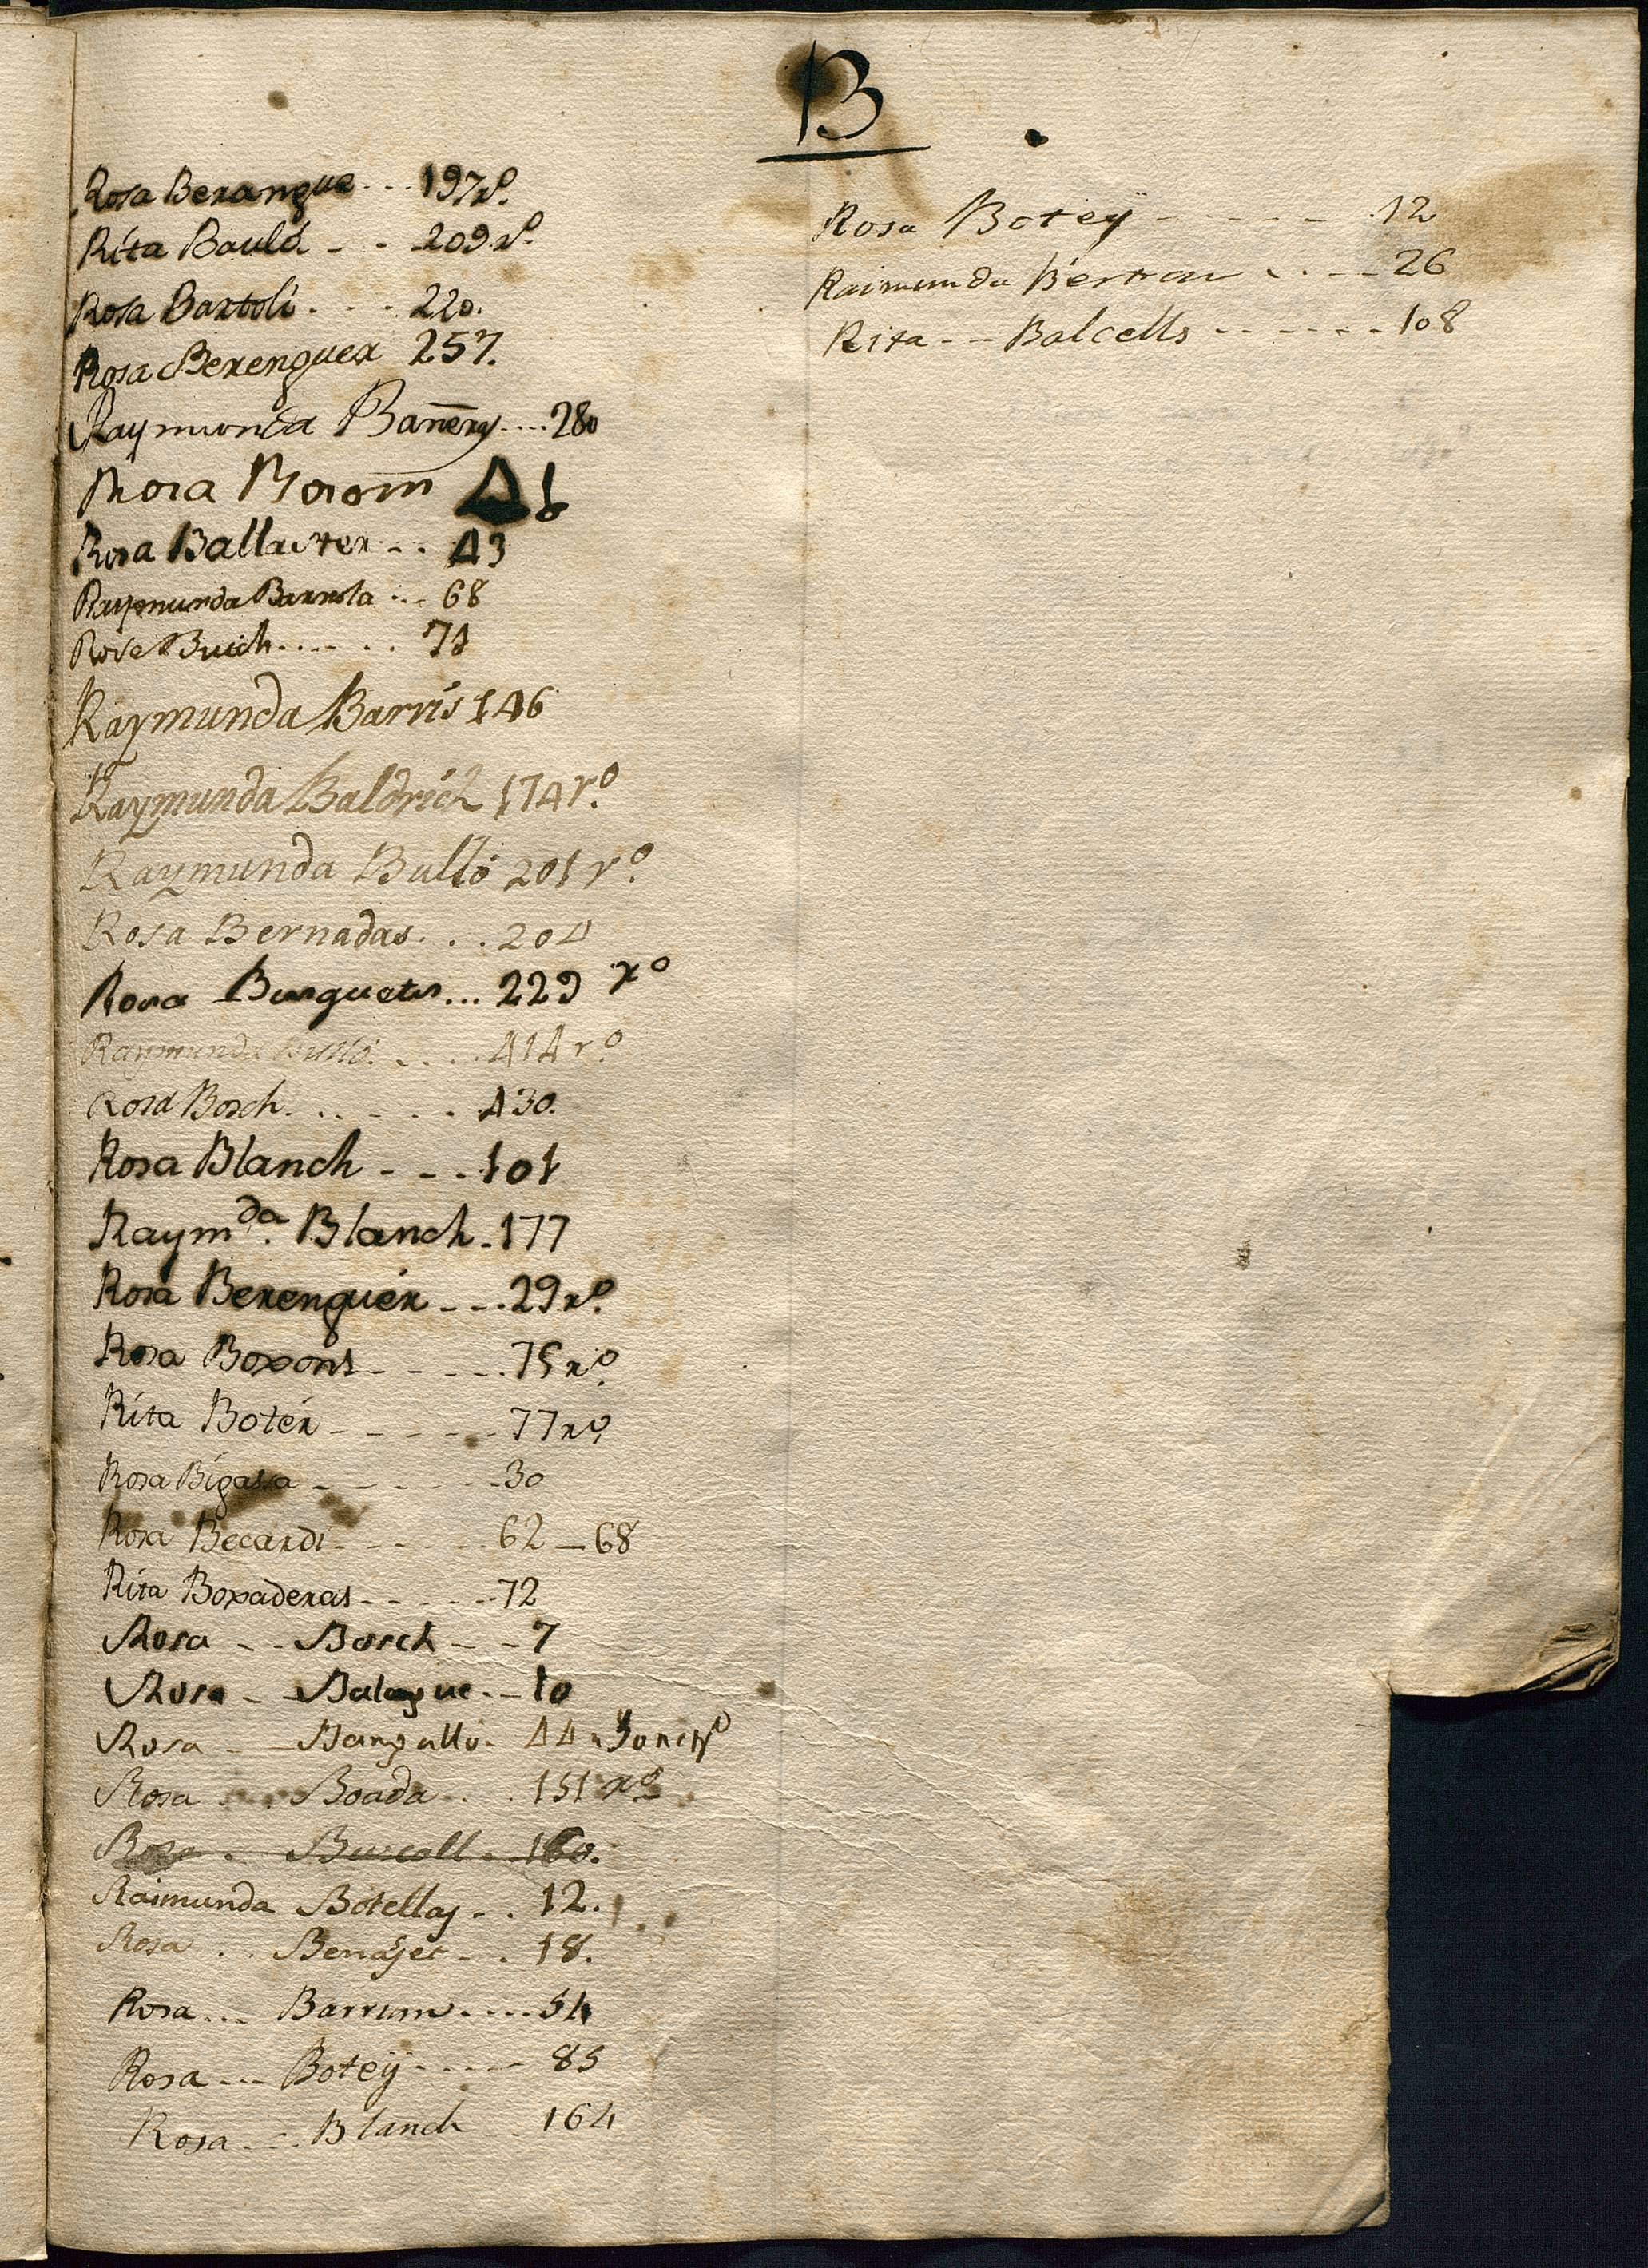 B
Rosa Berangue - - - 197 rº.
Rita Bauló - - 209 rº.
Rosa Bartoli - - - 220.
Rosa Berenguer 257.
Raymunda Bañeras .... 280
Rosa 46
Rosa Ballaster - - . 43
Raymunda Barrota ... 68
Rosa Buich ...... 74
Raymunda Barris 146
Raymunda Baldrich 174 rº.
Raymunda Bulló 201 rº.
Rosa Bernadas . . . 204
Rosa Busquets ... 229 rº
Raymunda Bulló . . . . 414 rº.
Rosa Bosch . . . . . . 430.
Rosa Blanch - - - 101
Raymda. Blanch - 177
Rosa Berenguér - - - 29 rº.
Rosa Boxons - - - - - 75 rº.
Rita Botér - - - - - 77 rº.
Rosa Bigassa - - - - - - 30
Rosa Becardi - - - - - 62 - 68
Rita Boxaderas - - - - - 72
Rosa - - Bosch - - 7
Rosa - - Balague - - 10
Rosa - - 44
Rosa . . . Boada . . . 151 rº
Rosa . Buscall . 160.
Raimunda Botellas - . 12.
Rosa . . Benajet - . 18.
Rosa ... .... 54
Rosa --- Boteÿ ---- 85
Rosa ... Blanch . 164
Rosa Boteÿ - - - - - 12
Raimunda Bertran - . - - 26
Rita - - Balcells - - - - - - 108